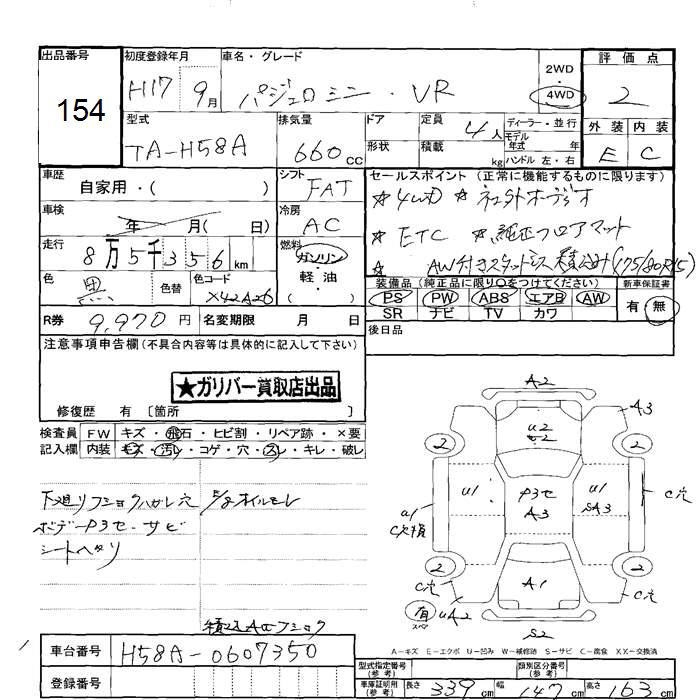 出品番号 初度登録年月 車名・グレード 2WD 評価点
154 H17 9月 パジェロミニ ・ VR ・ 4WD 2
型式 排気量 ドア 定員 ディーラー・並行 外装 内装
TA-H58A 660cc 4人 モデル年式 年 E C
形状 積載 kg ハンドル 左・右
車歴 シフト セールスポイント (正常に機能するものに限ります)
自家用・( ) FAT ★4WD ★社外オーディオ
車検 年 月( 日) 冷房 AC ★ETC ★純正フロアマット
走行 8万5千356km 燃料 ガソリン・軽油・( ) ★ AW付きスタッドレス積込み(175/80R15)
色 黒 色替 色コード X42A26 装備品(純正品に限り○をつけてください) 新車保証書
PS PW ABS エアB AW 有・無
R券 9,970円 名変期限 月 日 SR ナビ TV カワ
注意事項申告欄(不具合内容等は具体的に記入して下さい) 後日品
★ガリバー買取店出品
修復歴 有 [箇所 ]
検査員 FW キズ・飛石・ヒビ割・リペア跡・×要
記入欄 内装 キズ・汚レ・コゲ・穴・スレ・キレ・破レ
下廻リフショクハガレ穴 オイルモレ
ボデーP3セ・サビ
シートヘタリ
A2
A3
U2
2 2
U1 P3セ U1 C穴
U1 A3 SA3
C欠損
2 2
C穴 A1 C穴
有 UA2
スペア
S2
積込AWフショク
A-キズ E-エクボ U-凹み W-補修跡 S-サビ C-腐食 XX-交換済
車台番号 H58A-0607350
登録番号
型式指定番号(参考) 類別区分番号(参考)
車庫証明用(参考) 長さ 339cm 幅 147cm 高さ 163cm